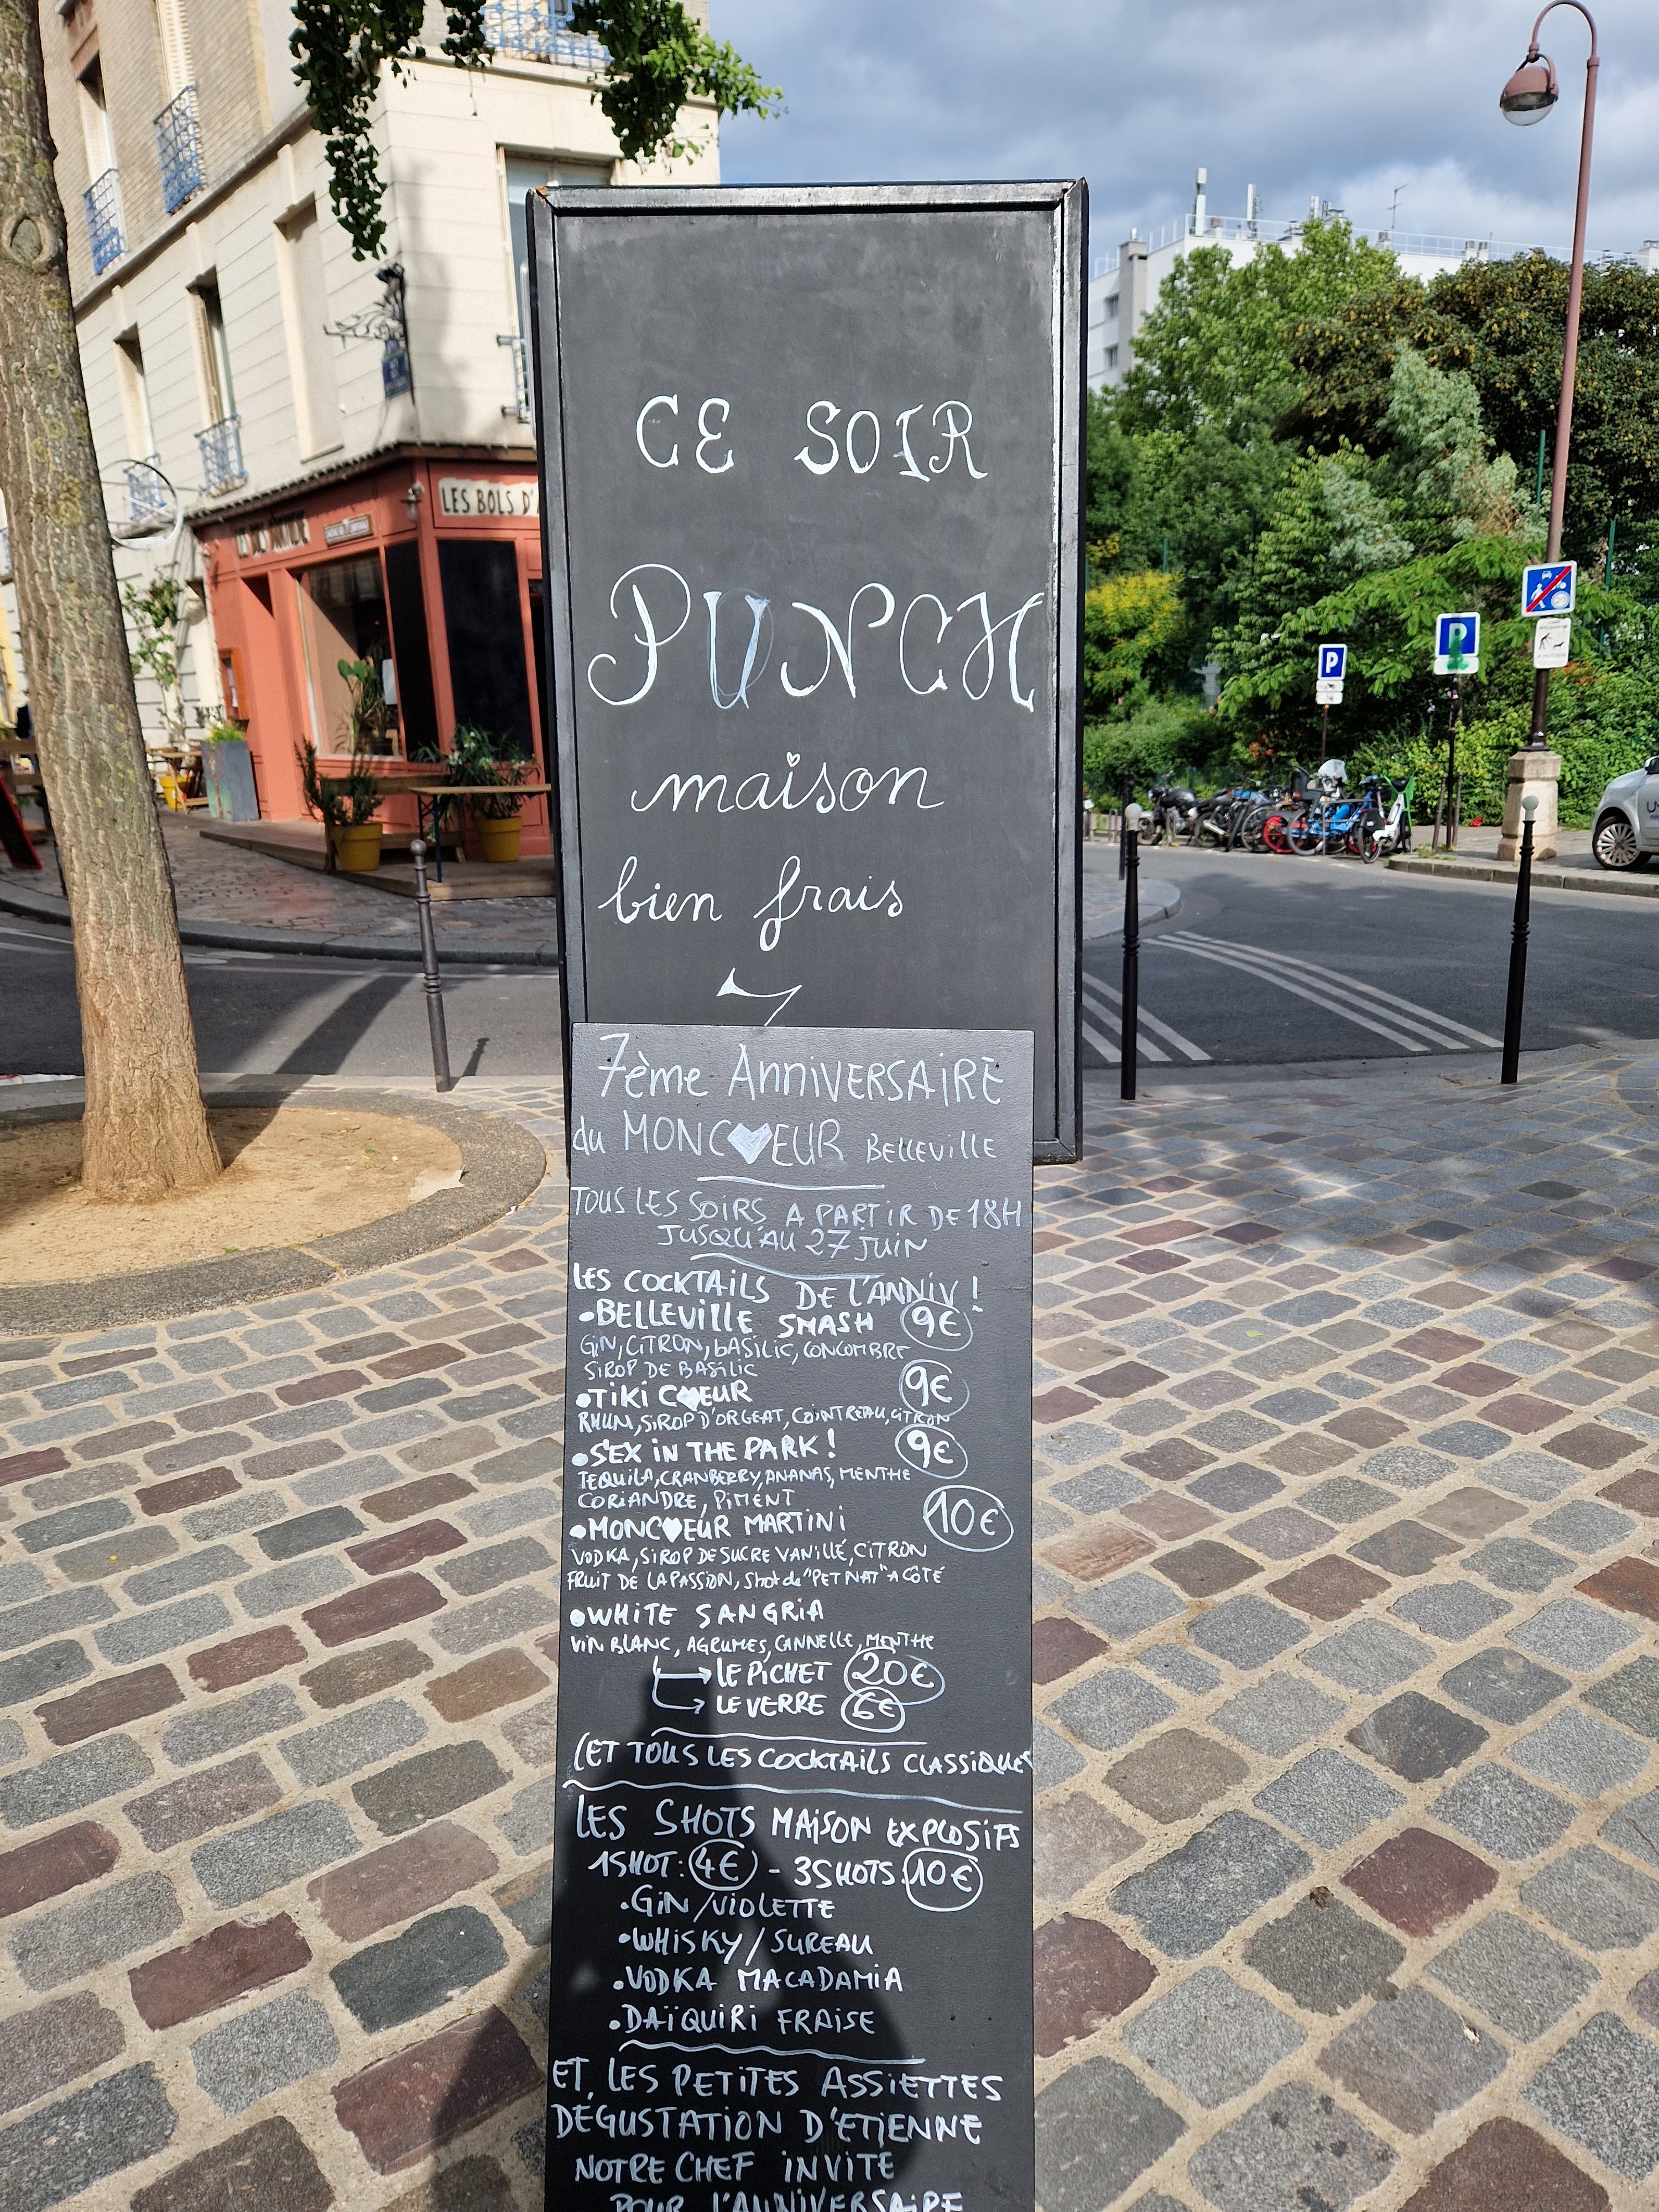 LES BOLS D'
CE SOIR
PUNCH
maison
bien frais
7ème ANNIVERSAIRE
du MONC♥EUR BELLEVILLE
TOUS LES SOIRS A PARTIR DE 18H
JUSQU'AU 27 JUIN
LES COCKTAILS DE L'ANNIV !
•BELLEVILLE SMASH 9€
GIN, CITRON, BASILIC, CONCOMBRE
SIROP DE BASILIC
•TIKI C♥EUR 9€
RHUM, SIROP D'ORGEAT, COINTREAU, CITRON
•SEX IN THE PARK ! 9€
TEQUILA, CRANBERRY, ANANAS, MENTHE
CORIANDRE, PIMENT
•MONC♥EUR MARTINI 10€
VODKA, SIROP DE SUCRE VANILLÉ, CITRON
FRUIT DE LA PASSION, Shot de "PET NAT" A CÔTÉ
•WHITE SANGRIA
VIN BLANC, AGRUMES, CANNELLE, MENTHE
LE PICHET 20€
LE VERRE 6€
(ET TOUS LES COCKTAILS CLASSIQUES
LES SHOTS MAISON EXPLOSIFS
1 SHOT: 4€ - 3 SHOTS: 10€
•GIN/VIOLETTE
•WHISKY/SUREAU
•VODKA MACADAMIA
•DAÏQUIRI FRAISE
ET, LES PETITES ASSIETTES
DEGUSTATION D'ETIENNE
NOTRE CHEF INVITE
POUR L'ANNIVERSAIRE
P
P